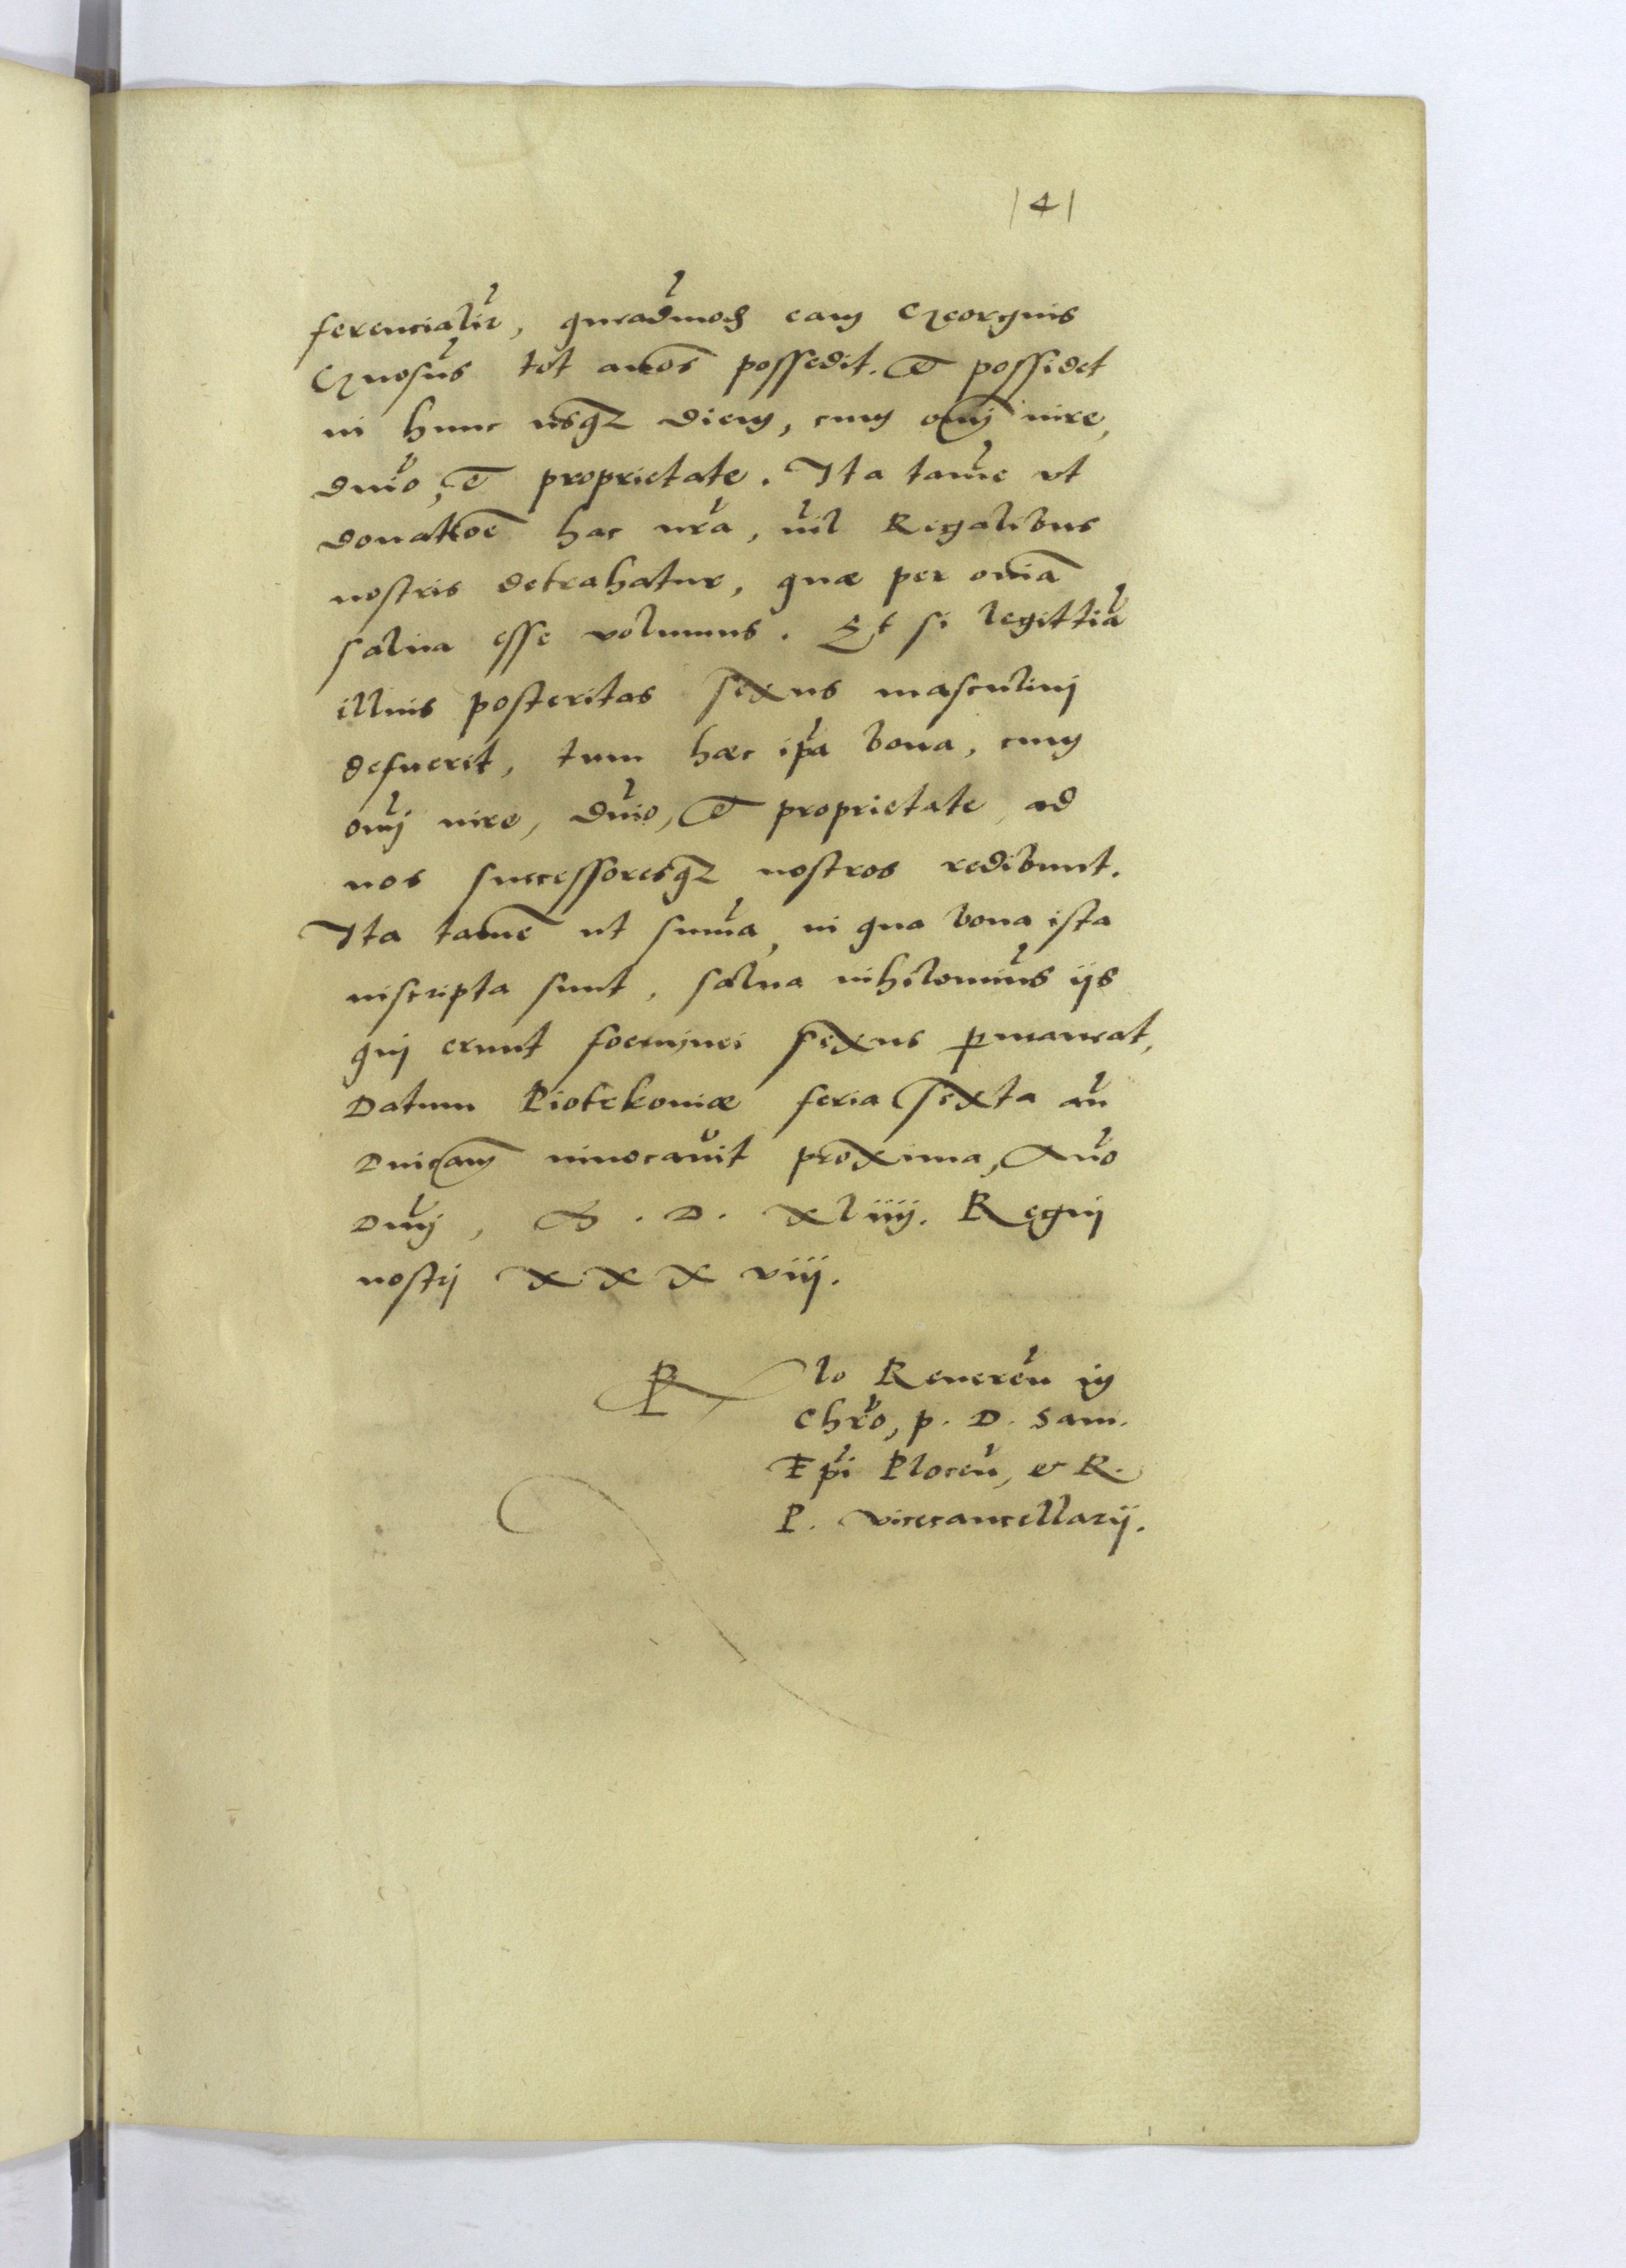 |4|
ferencialir̃, quẽadmod̃ eam Georgius
Gnosus̃ tot años possedit. Et possidet
in hunc usq₃ diem, cum oñi iure,
dñio, et proprietate. Ita tamẽ ut
donatioẽ hac nr̃a, nil Regalibus
nostris detrahatur, quæ per oñia
salua esse volumus. Et si legittiã
illius posteritas sexus masculini
defuerit, tum hæc ip̃a bona, cum
oñj iure, dñio, et proprietate ad
nos successoresq₃ nostros redibunt.
Ita tamẽ ut sum̃a, in qua bona ista
inscripta sunt, salua nihilomin̄us ijs
qui erunt foeminei sexus ꝑmaneat,
Datum Piotrkoniæ feria sexta añ
Dñicam̃ inuocauit proxima, Año
Dñj, M. D. xliiij. Regnj
nostrj x x x viij.
R̃lo Reuereñ in
Chr̃o, p. D. Sam.
Ep̃i Ploceñ, et R.
P. vicecancellarij.